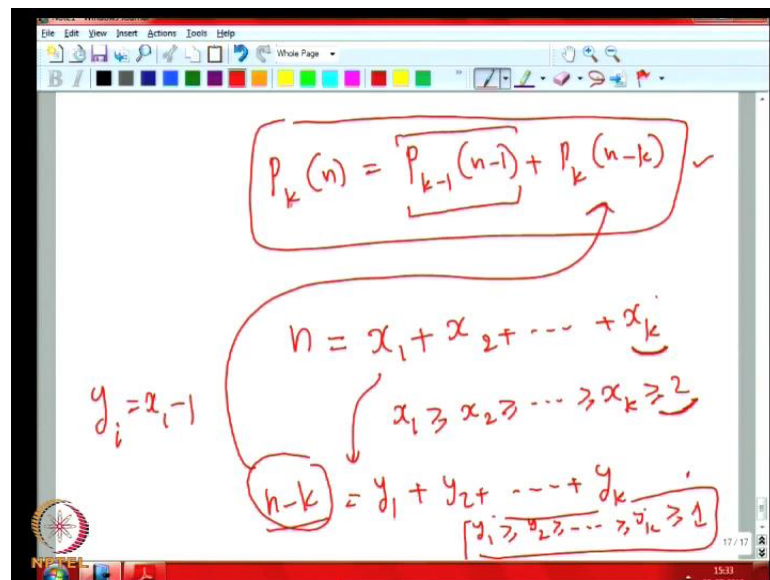 File Edit View Insert Actions Tools Help
Whole Page
B I
P_k (n) = P_{k-1} (n-1) + P_k (n-k) ✓
n = x_1 + x_2 + ⋯ + x_k
y_i = x_i - 1
x_1 ≥ x_2 ≥ ⋯ ≥ x_k ≥ 2
n-k = y_1 + y_2 + ⋯ + y_k
y_1 ≥ y_2 ≥ ⋯ ≥ y_k ≥ 1
17 / 17
NPTEL
15:33